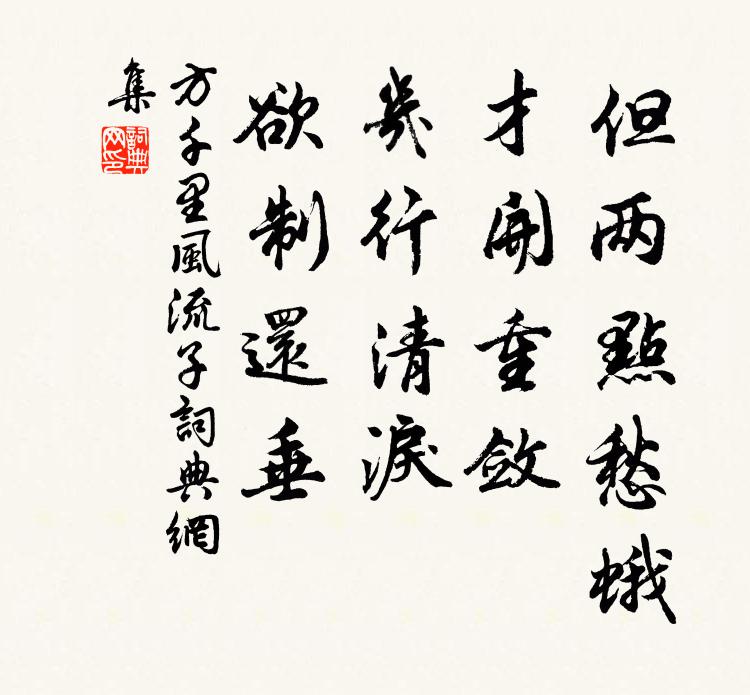 但两點愁蛾
才開重斂
幾行清淚
欲制還垂
方千里風流子詞典網
集
詞典
网印